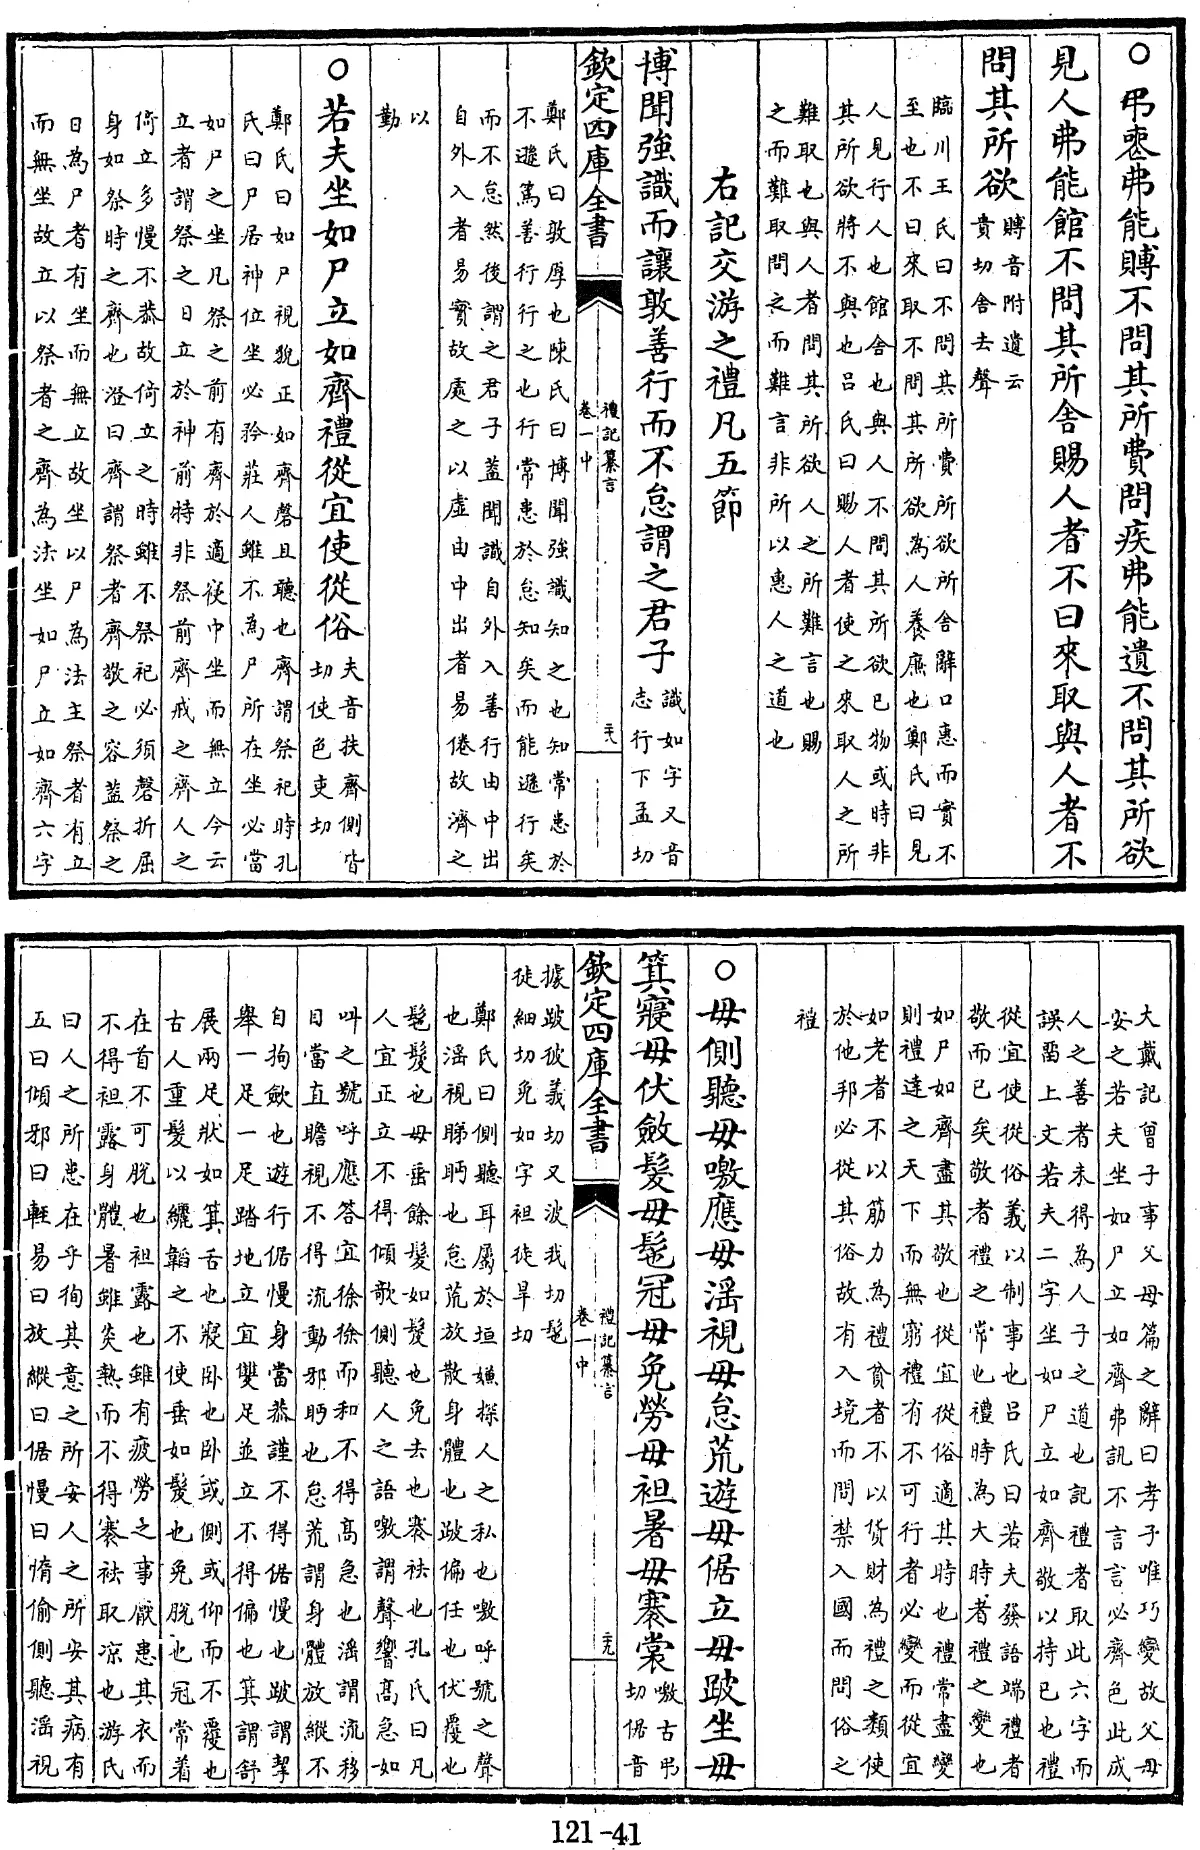 ○弔喪弗能賻不問其所費問疾弗能遺不問其所欲
見人弗能館不問其所舍賜人者不曰來取與人者不
問其所欲
賻音附遺云
貴切舍去聲
臨川王氏曰不問其所費所欲所舍辭口惠而實不
至也不曰來取不問其所欲為人養廉也鄭氏曰見
人見行人也館舍也與人不問其所欲已物或時非
其所欲將不與也呂氏曰賜人者使之來取人之所
難取也與人者問其所欲人之所難言也賜
之而難取問之而難言非所以惠人之道也
右記交游之禮凡五節
博聞強識而讓敦善行而不怠謂之君子
識如字又音
志行下孟切
欽定四庫全書
禮記纂言
卷一中
二十八
鄭氏曰敦厚也陳氏曰博聞強識知之也知常患於
不遜篤善行行之也行常患於怠知矣而能遜行矣
而不怠然後謂之君子蓋聞識自外入善行由中出
自外入者易實故處之以虛由中出者易倦故濟之
以
勤
○若夫坐如尸立如齊禮從宜使從俗
夫音扶齊側皆
切使色吏切
鄭氏曰如尸視貌正如齊磬且聽也齊謂祭祀時孔
氏曰尸居神位坐必矜莊人雖不為尸所在坐必當
如尸之坐凡祭之前有齊於適寢中坐而無立今云
立者謂祭之日立於神前時非祭前齊戒之齊人之
倚立多慢不恭故倚立之時雖不祭祀必須磬折屈
身如祭時之齊也澄曰齊謂祭者齊敬之容蓋祭之
日為尸者有坐而無立故坐以尸為法主祭者有立
而無坐故立以祭者之齊為法坐如尸立如齊六字
大戴記曾子事父母篇之辭曰孝子唯巧變故父母
安之若夫坐如尸立如齊弗訊不言言必齊色此成
人之善者未得為人子之道也記禮者取此六字而
誤留上文若夫二字坐如尸立如齊敬以持已也禮
從宜使從俗義以制事也呂氏曰若夫發語端禮者
敬而已矣敬者禮之常也禮時為大時者禮之變也
如尸如齊盡其敬也從宜從俗適其時也禮常盡變
則禮達之天下而無窮禮有不可行者必變而從宜
如老者不以筋力為禮貧者不以貨財為禮之類使
於他邦必從其俗故有入境而問禁入國而問俗之
禮
○毋側聽毋噭應毋淫視毋怠荒遊毋倨立毋跛坐毋
箕寢毋伏斂髮毋髢冠毋免勞毋袒暑毋褰裳
噭古弔
切倨音
欽定四庫全書
禮記纂言
卷一中
二十九
據跛彼義切又波我切髢
徒細切免如字袒徒旱切
鄭氏曰側聽耳屬於垣嫌探人之私也噭呼號之聲
也淫視睇眄也怠荒放散身體也跛偏任也伏覆也
髢髮也毋垂餘髮如髲也免去也褰袪也孔氏曰凡
人宜正立不得傾欹側聽人之語噭謂聲響高急如
叫之號呼應答宜徐徐而和不得高急也淫謂流移
目當直瞻視不得流動邪眄也怠荒謂身體放縱不
自拘斂也遊行倨慢身當恭謹不得倨慢也跛謂挈
舉一足一足踏地立宜雙足並立不得偏也箕謂舒
展兩足狀如箕舌也寢卧也卧或側或仰而不覆也
古人重髮以纚韜之不使垂如髲也免脫也冠常着
在首不可脫也袒露也雖有疲勞之事厭患其衣而
不得袒露身體暑雖炎熱而不得褰袪取凉也游氏
曰人之所患在乎徇其意之所安人之所安其病有
五曰傾邪曰輕易曰放縱曰倨慢曰惰偷側聽淫視
121-41